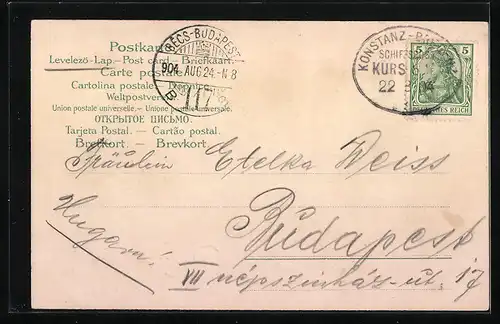 Postkarte
Levelező-Lap. - Post card - Briefkaart
Carte postale
Cartolina postale.
Weltpostverein
Union postale universelle. - Unione postale universale.
ОТКРЫТОЕ ПИСЬМО.
Tarjeta Postal. - Cartão postal.
Brefkort. - Brevkort.
BÉCS-BUDAPEST
904 AUG 24 - N 8
KONSTANZ-
KURS
22
5 5
REICH
Fräulein Etelka Weiss
Budapest
Ungarn!
VII népszinház-ut. 17